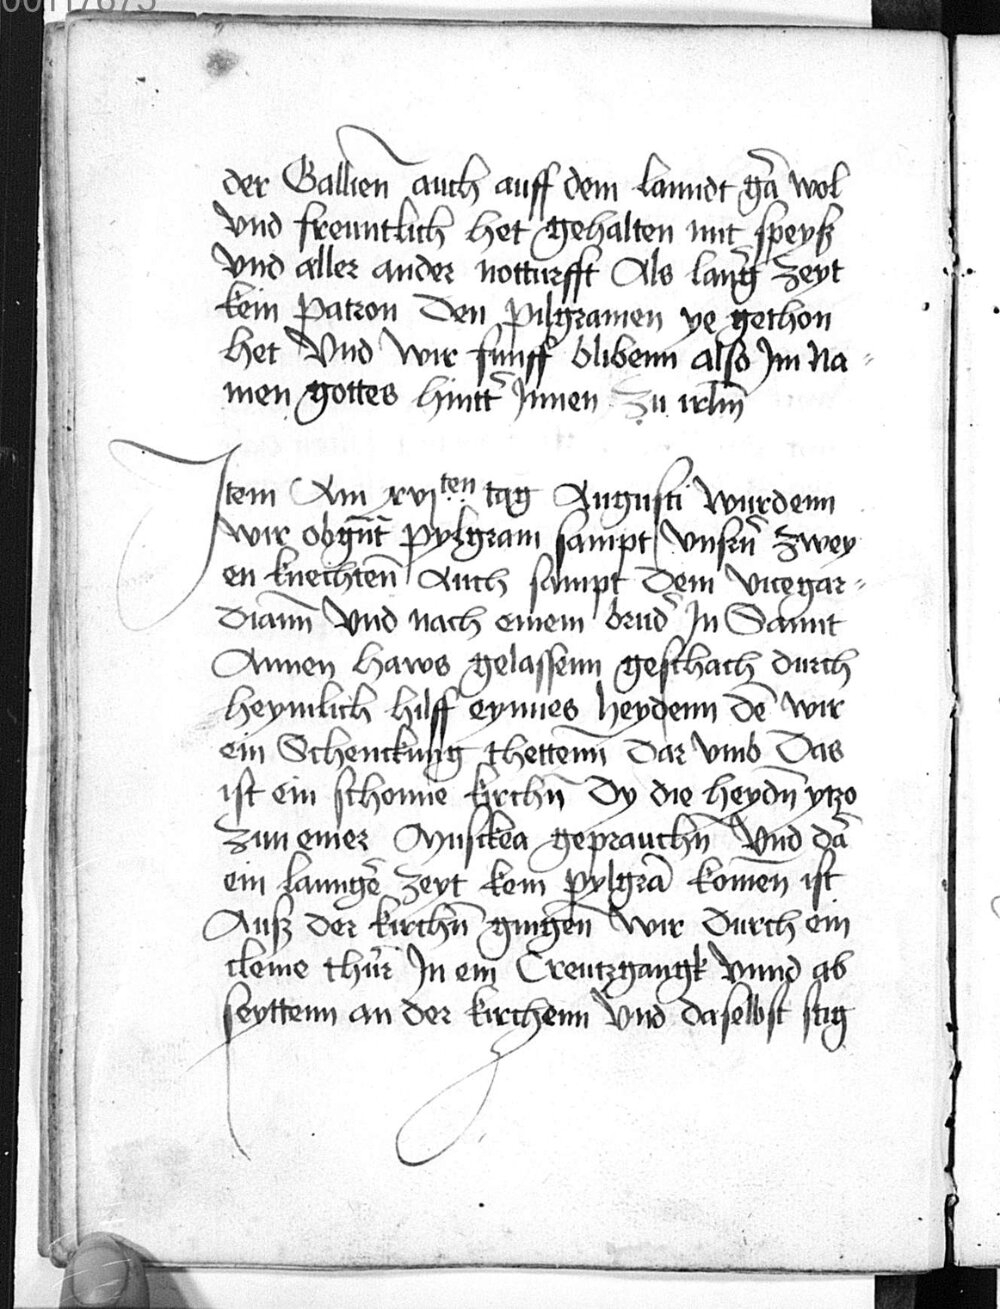 der Gallien auch auff dem lanndt gā wol
Vnd freuntlich het gehalten mit speyß
Vnd aller ander notturfft Als lang zeyt
kein Patron Den Pilgramen ye gethon
het Vnd Wir funff blibenn also Jm Na-
men gottes hintt' Jnnen zu irlm̄
Jtem Am xvjten tag Augusti Wurdenn
wir obgn̄t Pylgram sampt Vnsrn̄ zwey
en knechten Auch sampt Dem vicegar-
Diann Vnd nach einem brud' Jn Sannt
Annen haws gelassenn geschach durch
heymlich hilff eynnes heydenn dē wir
ein Schenckung thettenn Dar vmb Das
ist ein schonne kirchn̄ Dy die heydn̄ ytzo
zun einer Musckea geprauchn̄ Vnd dā
ein lanngē zeyt kein pylgrā komen ist
Auß der kirchn̄ gingen Wir Durch ein
cleine thur Jn ein Creutzgangk Vnnd ab
seyttenn an der kirchenn Vnd daselbst stig